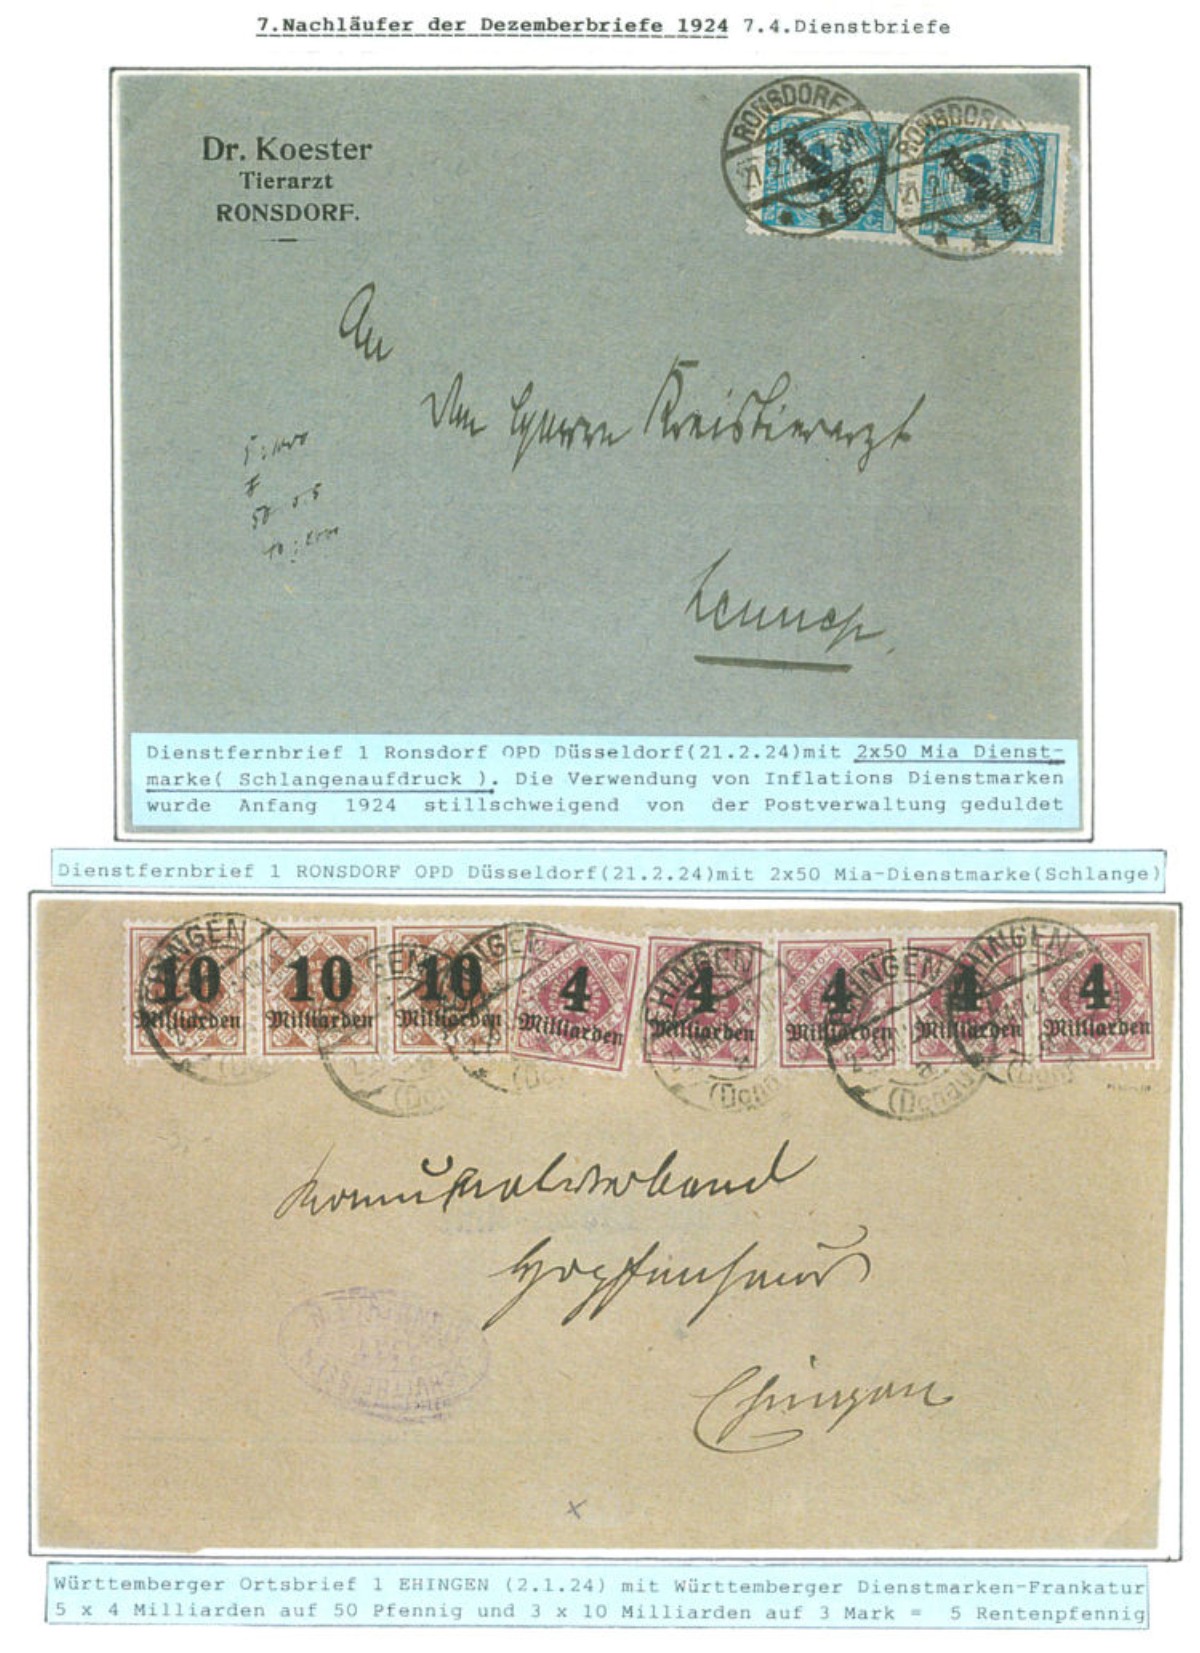 7.Nachläufer der Dezemberbriefe 1924 7.4.Dienstbriefe
Dr. Koester
Tierarzt
RONSDORF.
RONSDORF RONSDORF
An
den Herren Kreistierarzt
Lennep.
Dienstfernbrief 1 Ronsdorf OPD Düsseldorf(21.2.24)mit 2x50 Mia Dienst-
marke( Schlangenaufdruck ). Die Verwendung von Inflations Dienstmarken
wurde Anfang 1924 stillschweigend von der Postverwaltung geduldet
Dienstfernbrief 1 RONSDORF OPD Düsseldorf(21.2.24)mit 2x50 Mia-Dienstmarke(Schlange)
10 10 10 4 4 4 4 4
Milliarden Milliarden Milliarden Milliarden Milliarden Milliarden Milliarden Milliarden
EHINGEN
(Donau)
Kommunalverband
Hopfenhaus
Ehingen
Württemberger Ortsbrief 1 EHINGEN (2.1.24) mit Württemberger Dienstmarken-Frankatur
5 x 4 Milliarden auf 50 Pfennig und 3 x 10 Milliarden auf 3 Mark = 5 Rentenpfennig